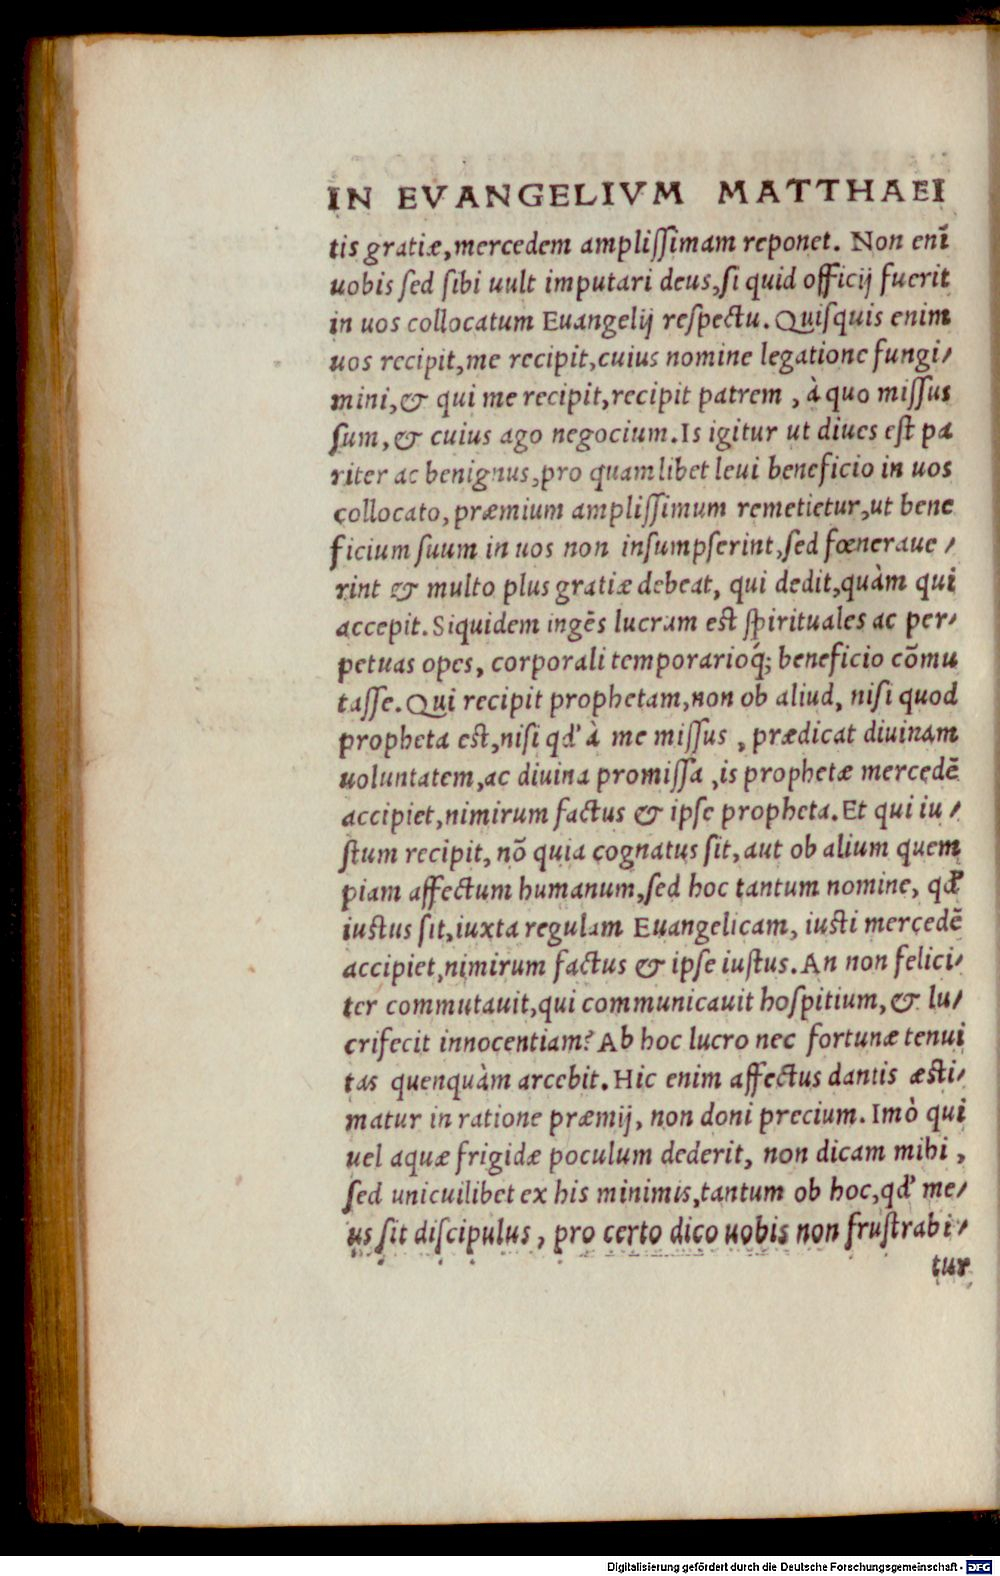 IN EVANGELIVM MATTHAEI
tis gratiæ, mercedem ampliſſimam reponet. Non enī
uobis ſed ſibi uult imputari deus, ſi quid officij fuerit
in uos collocatum Euangelij reſpectu. Quiſquis enim
uos recipit, me recipit, cuius nomine legatione fungi⸗
mini, & qui me recipit, recipit patrem, à quo miſſus
ſum, & cuius ago negocium. Is igitur ut diues eſt pa
riter ac benignus, pro quamlibet leui beneficio in uos
collocato, præmium ampliſſimum remetietur, ut bene
ficium ſuum in uos non inſumpſerint, ſed fœneraue⸗
rint & multo plus gratiæ debeat, qui dedit, quàm qui
accepit. Siquidem ingēs lucrum eſt ſpirituales ac per⸗
petuas opes, corporali temporarioq́; beneficio cōmu
taſſe. Qui recipit prophetam, non ob aliud, niſi quod
propheta eſt, niſi qđ à me miſſus, prædicat diuinam
uoluntatem, ac diuina promiſſa, is prophetæ mercedē
accipiet, nimirum factus & ipſe propheta. Et qui iu⸗
ſtum recipit, nō quia cognatus ſit, aut ob alium quem
piam affectum humanum, ſed hoc tantum nomine, qđ
iuſtus ſit, iuxta regulam Euangelicam, iuſti mercedē
accipiet, nimirum factus & ipſe iuſtus. An non felici⸗
ter commutauit, qui communicauit hoſpitium, & lu⸗
crifecit innocentiam? Ab hoc lucro nec fortunæ tenui
tas quenquàm arcebit. Hic enim affectus dantis æſti⸗
matur in ratione præmij, non doni precium. Imò qui
uel aquæ frigidæ poculum dederit, non dicam mihi,
ſed unicuilibet ex his minimis, tantum ob hoc, qđ me⸗
us ſit diſcipulus, pro certo dico uobis non fruſtrabi⸗
tur
Digitalisierung gefördert durch die Deutsche Forschungsgemeinschaft - DFG